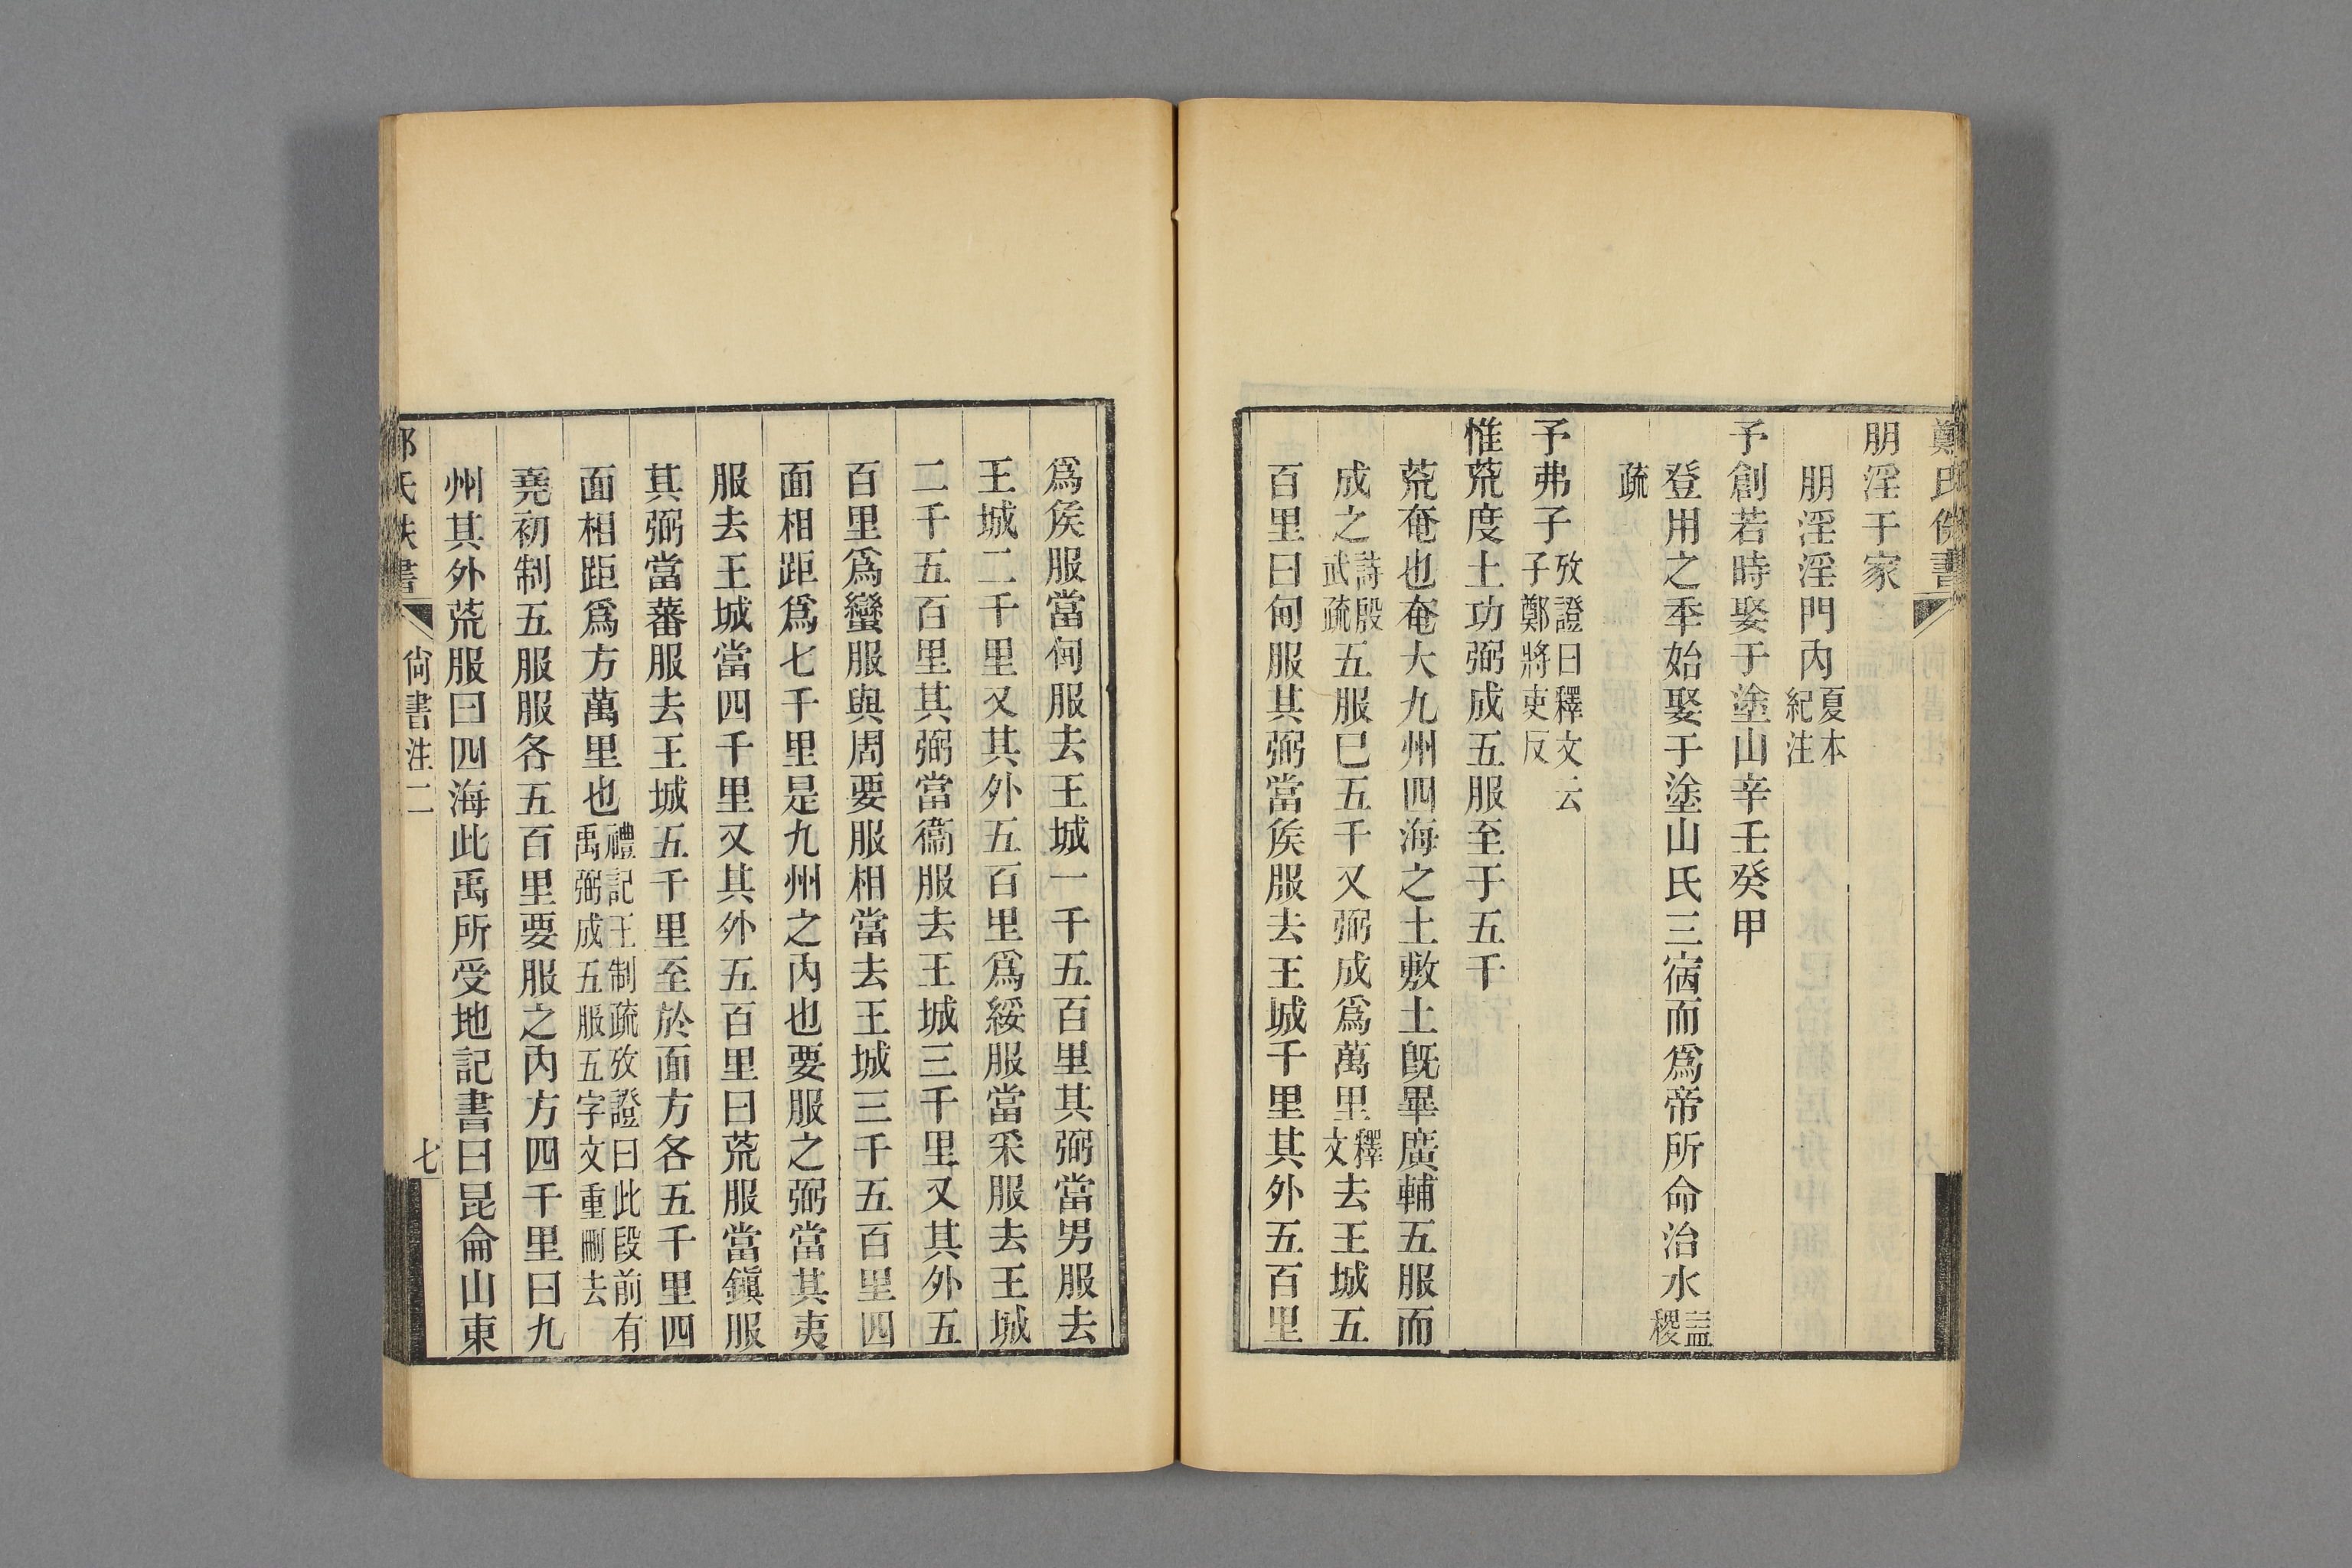 鄭氏佚書
朋淫于家
朋淫淫門内夏本紀注
予創若時娶于塗山辛壬癸甲
登用之秊始娶于塗山氏三宿而爲帝所命治水益稷
疏
予弗子攷證曰釋文云子鄭將吏反
惟荒度土功弼成五服至于五千
荒奄也奄大九州四海之土敷土旣畢廣輔五服而
成之詩殷武疏五服已五千又弼成爲萬里釋文去王城五
百里曰甸服其弼當矦服去王城千里其外五百里
爲矦服當甸服去王城一千五百里其弼當男服去
王城二千里又其外五百里爲綏服當采服去王城
二千五百里其弼當衞服去王城三千里又其外五
百里爲蠻服與周要服相當去王城三千五百里四
面相距爲七千里是九州之内也要服之弼當其夷
服去王城當四千里又其外五百里曰荒服當鎭服
其弼當蕃服去王城五千里至於面方各五千里四
面相距爲方萬里也禮記王制疏攷證曰此段前有禹弼成五服五字文重刪去
堯初制五服服各五百里要服之内方四千里曰九
州其外荒服曰四海此禹所受地記書曰昆侖山東
鄭氏佚書 尙書注二 七